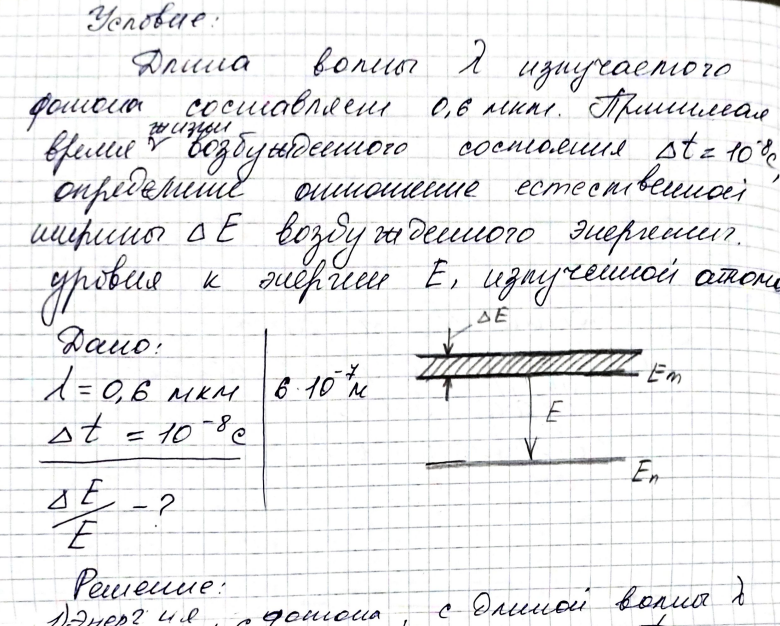 Условие:
Длина волны λ излучаемого
фотона составляет 0,6 мкм. Принимая
время жизни возбужденного состояния Δt = 10⁻⁸с,
определите отношение естественной
ширины ΔE возбужденного энергетич.
уровня к энергии E, излученной атомо
Дано:
λ = 0,6 мкм | 6·10⁻⁷м
Δt = 10⁻⁸с
ΔE/E - ?
ΔE
Em
E
En
Решение:
1) Энергия фотона, с длиной волны λ